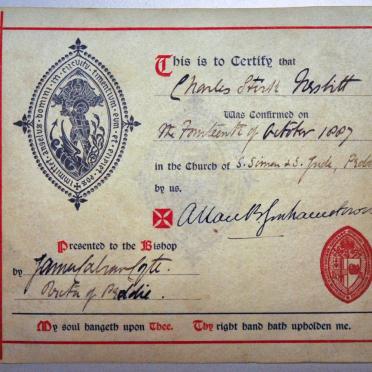 This is to Certify that
Charles Stirk Nesbitt
Was Confirmed on
the Fourteenth of October 1887
in the Church of S. Simon & S. Jude,
by us.
Allan B.
Presented to the Bishop
by James
Rector of Peddie.
My soul hangeth upon Thee. Thy right hand hath upholden me.